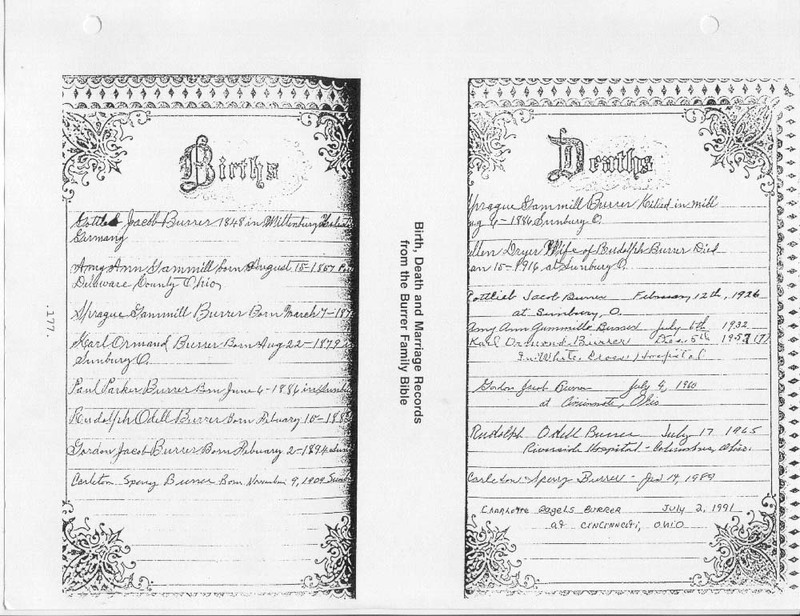 Births
Gottlieb Jacob Burrer 1848 in
Germany
Amy Ann Gammill born August 15-1857
Delaware County Ohio
Sprague Gammill Burrer Born March 7-187
Karl Ormand Burrer Born Aug 22-1879
Sunbury O.
Paul Parker Burrer Born June 6-1886 in Sunbu
Rudolph Odell Burrer Born Febuary 10-188
Gordon Jacob Burrer Born Febuary 2-1894
Carleton Sperry Burrer Born November 9, 1909 Sunb
.177.
Birth, Death and Marriage Records
from the Burrer Family Bible
Deaths
Sprague Gammill Burrer Killed in mill
ug 6-1886 Sunbury O.
Ellen Dryer Wife of Rudolph Burrer Died
an 15-1916, at Sunbury O.
Gottlieb Jacob Burrer February 12th, 1926
at Sunbury, O.
Amy Ann Gammill Burrer July 6th 1932
Karl Ormand Burrer Dec. 5th
In White Cross Hospital
Gordon Jacob Burrer July 9, 1960
at Cincinnati, Ohio
Rudolph Odell Burrer July 17 1965
Riverside Hospital - Columbus, Ohio.
Carleton Sperry Burrer - Jan 14, 1989
Charlotte Pagels Burrer July 2, 1991
at Cincinnati, Ohio